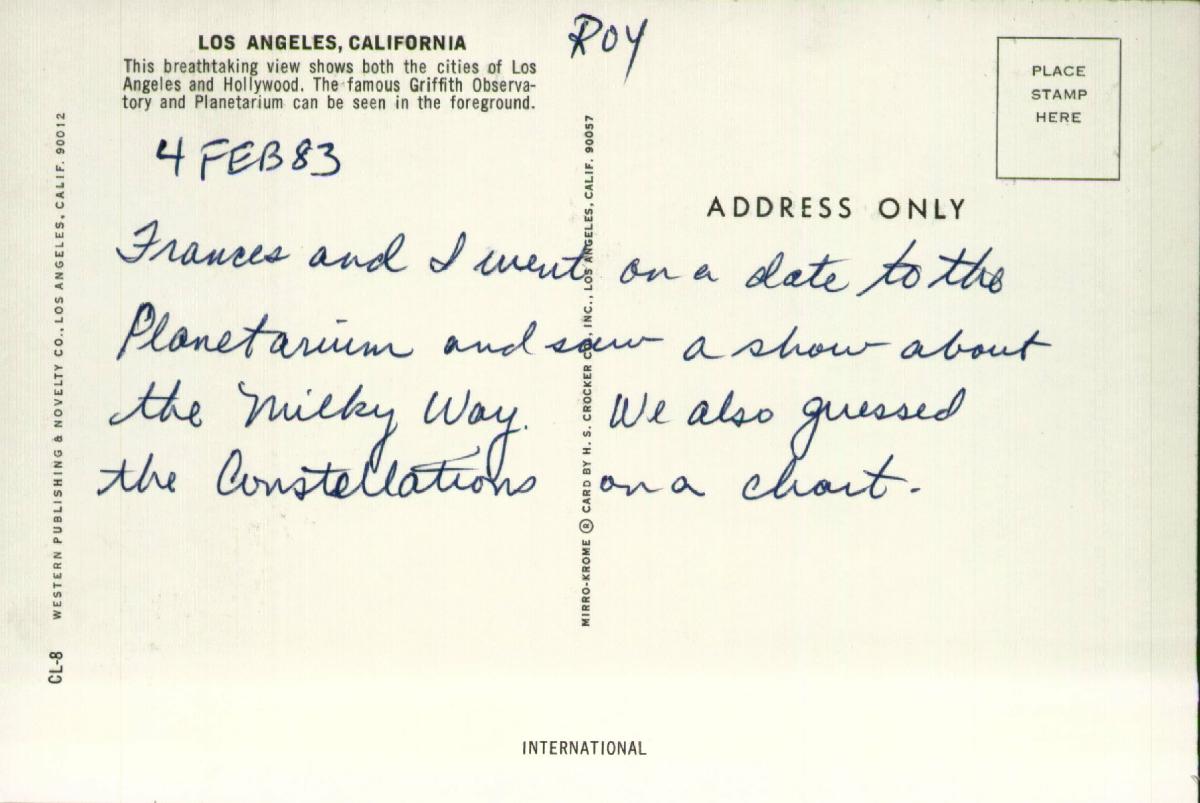 LOS ANGELES, CALIFORNIA
This breathtaking view shows both the cities of Los
Angeles and Hollywood. The famous Griffith Observa-
tory and Planetarium can be seen in the foreground.
ROY
PLACE
STAMP
HERE
4 FEB 83
ADDRESS ONLY
Frances and I went on a date to the
Planetarium and saw a show about
the Milky Way. We also guessed
the Constellations on a chart.
CL-8 WESTERN PUBLISHING & NOVELTY CO., LOS ANGELES, CALIF. 90012
MIRRO-KROME ® CARD BY H. S. CROCKER CO., INC., LOS ANGELES, CALIF. 90057
INTERNATIONAL